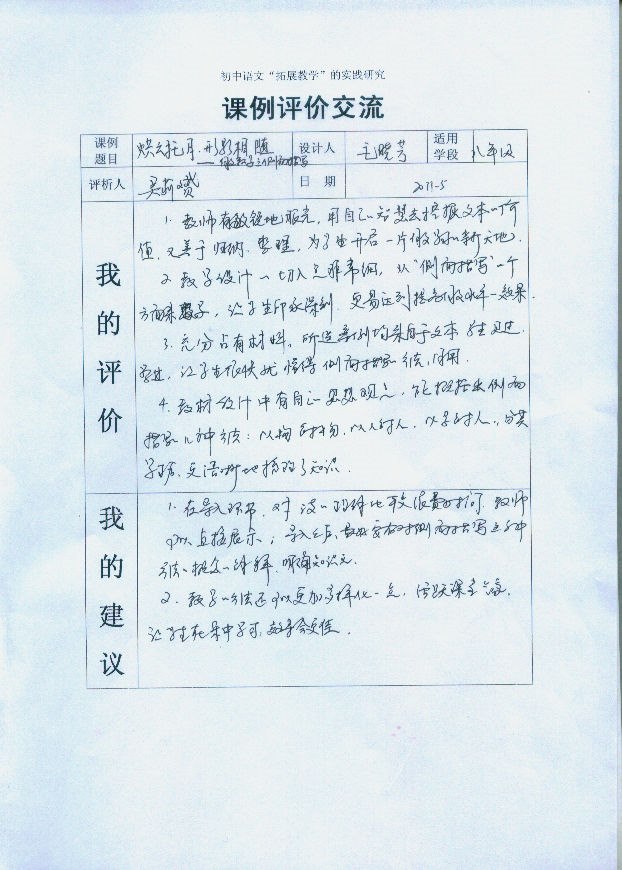 初中语文“拓展教学”的实践研究
课例评价交流
课例题目 烘云托月 形影相随 设计人 毛晓芳 适用学段 八年级
评析人 日期 2011-5
我的评价
1. 教师有敏锐地眼光,用自己的智慧去挖掘文本的价
值,又善于归纳、整理,为学生开启一片新天地。
2. 教学设计的切入点非常细,从“侧面描写”一个
方面来教学,让学生印象深刻,更易达到提高水平的效果。
3. 充分占有材料,所选案例均来自于文本,学生见过、
学过,让学生很快就懂得侧面描写的方法、作用。
4. 教材设计中有自己的思想观点,能概括出侧面
描写的几种方法:以物衬物、以人衬人、以景衬人,
又清晰地梳理了知识。
我的建议
1. 在导入环节,对比较浪费时间,教师
可以直接展示;导入之后,最好要有对侧面描写这种
方法概念的讲解,明确知识点。
2. 教学的方法还可以更加多样化一点,活跃课堂气氛,
让学生在乐中学习,效果会更佳。